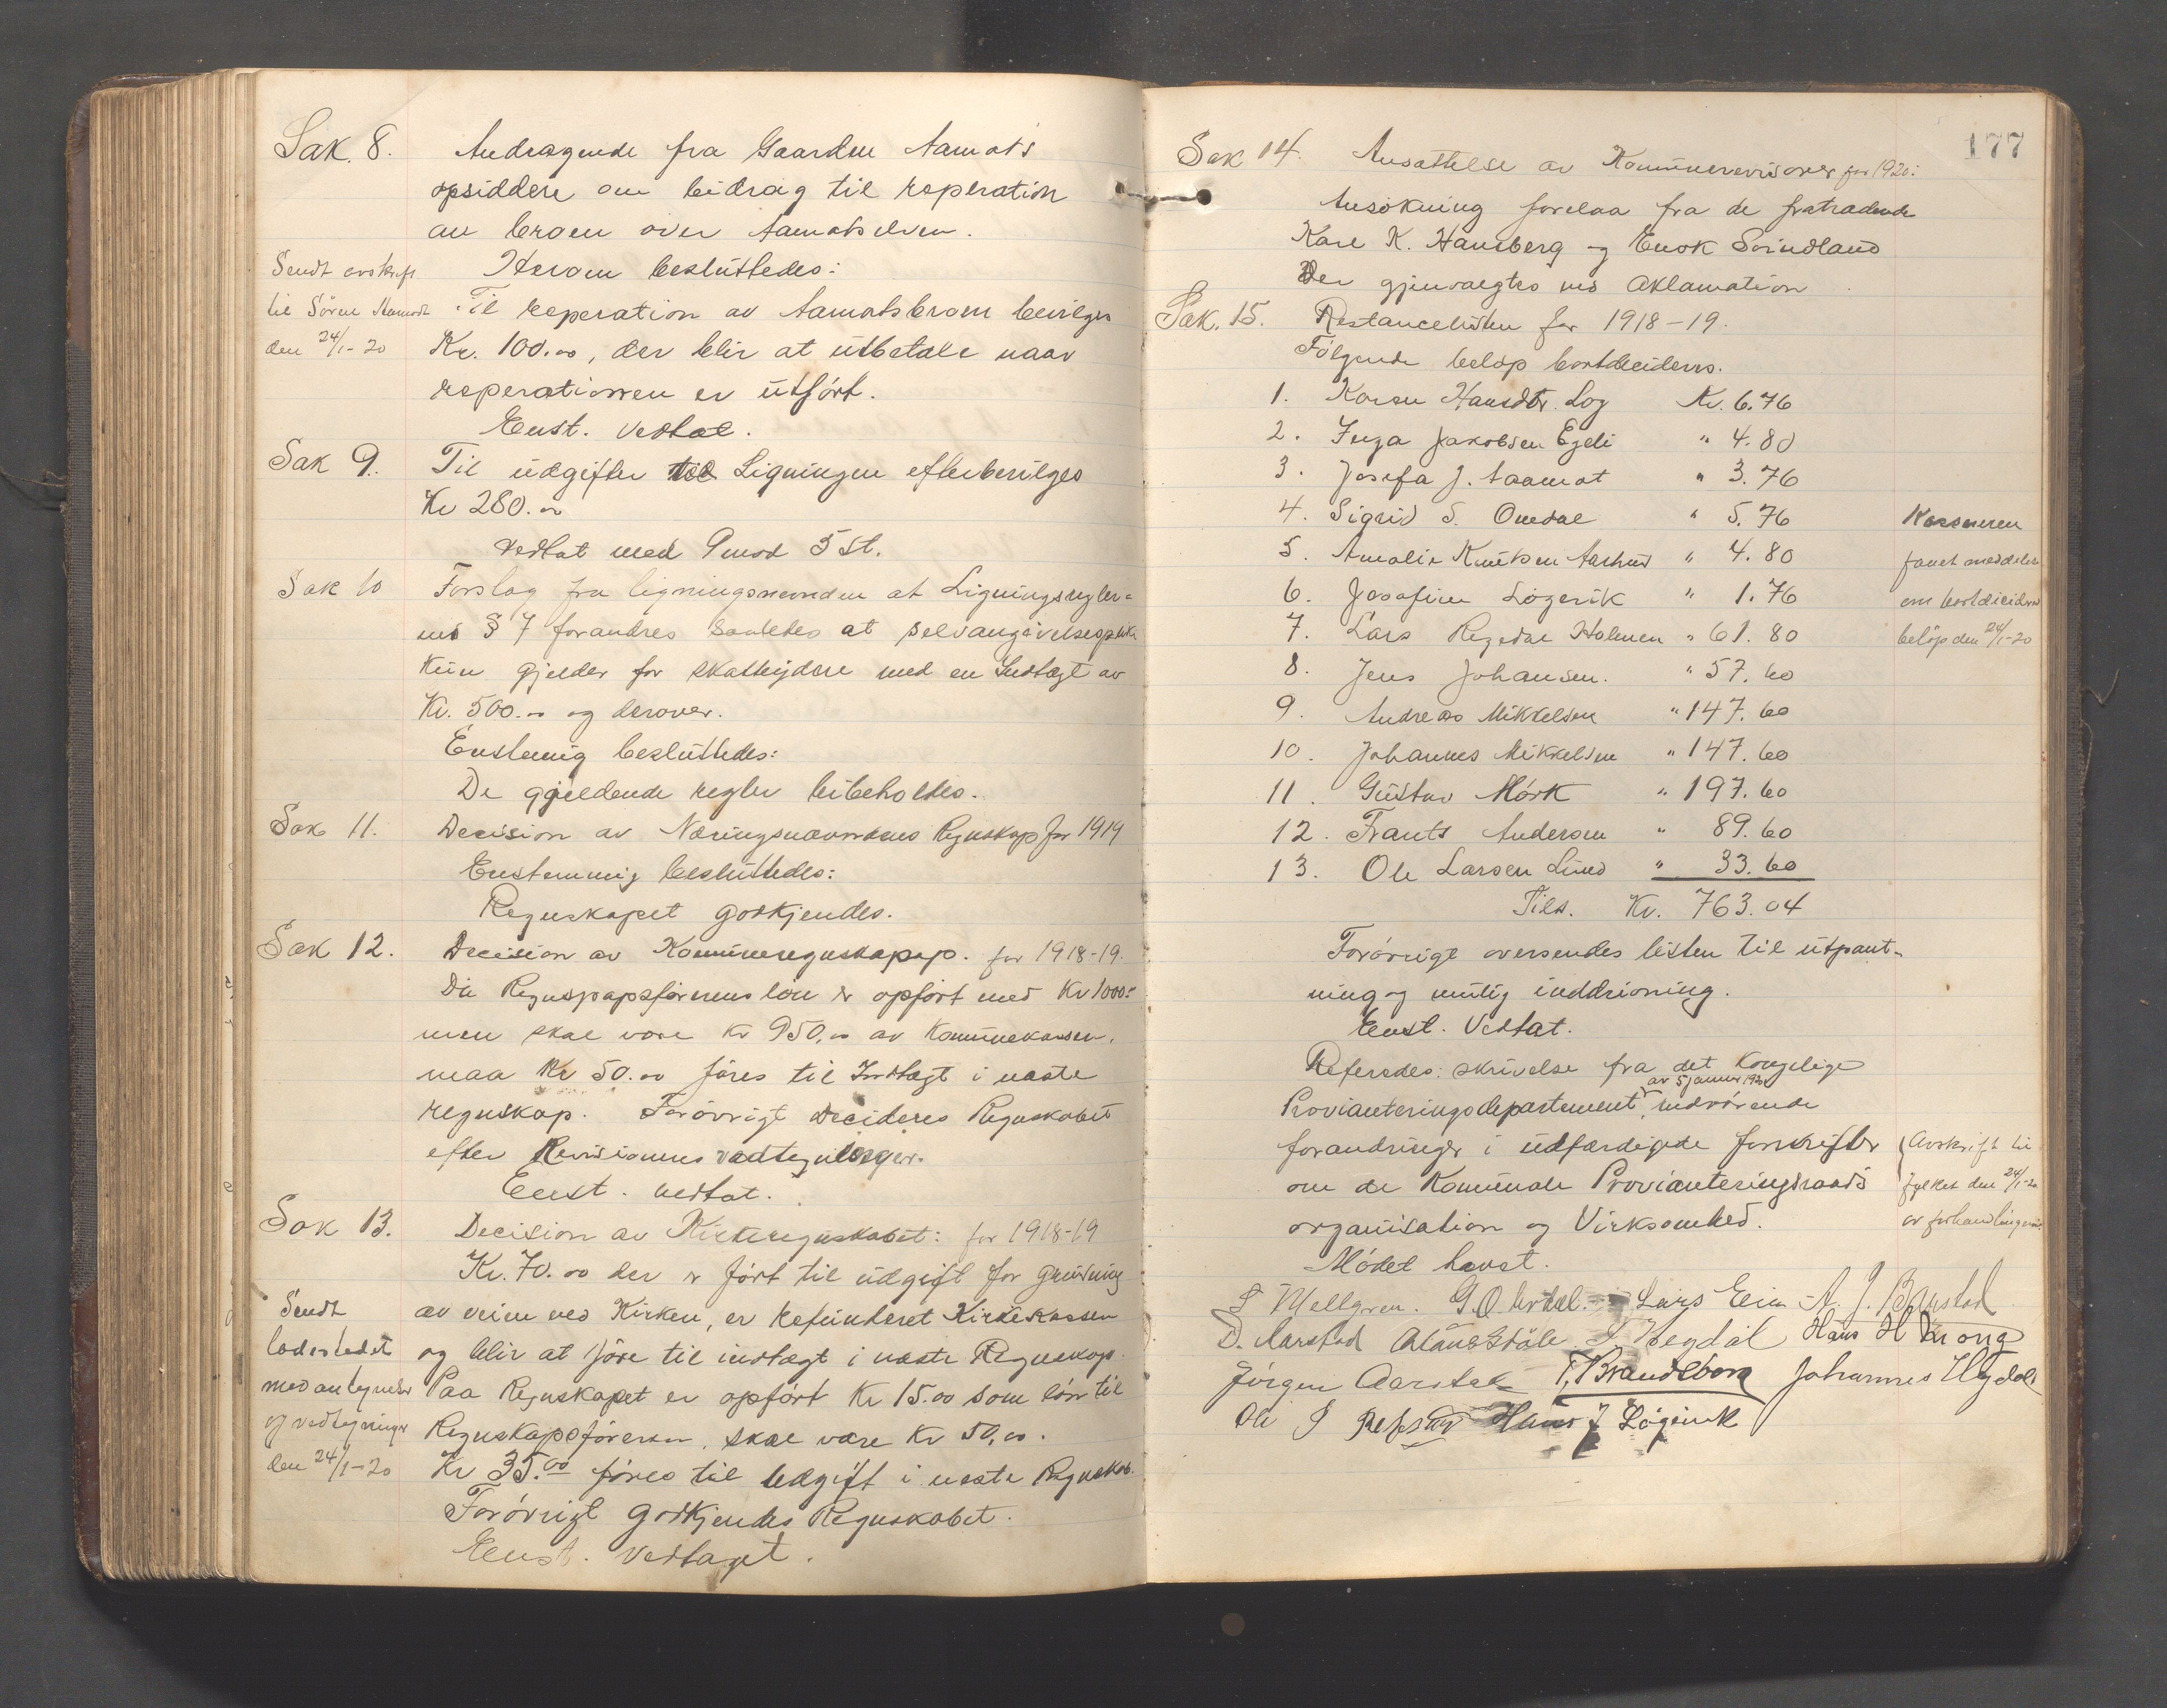 Sak. 8. Andragende fra Gaarden Aamots
opsiddere om bidrag til reperation
av broen over Aamotselven.
Herom besluttedes:
Sendt avskrift
til Sören Aamodt
den 24/1-20
Til reperation av Aamotsbroen bevilges
Kr. 100.00, der blir at utbetale naar
reperationen er utfört.
Enst. vedtat.
Sak 9. Til udgifter til Ligningen efterbevilges
Kr 280.00
vedtat med 9 mod 5 St.
Sak 10 Forslag fra ligningsnevnden at Ligningsregler-
nes § 7 forandres saaledes at selvangivelsesplikt
kun gjelder for skatteydere med en Indtægt av
Kr. 500.00 og derover.
Enstemig besluttedes:
De gjeldende regler bibeholdes.
Sak 11. Decision av Næringsnævndens Regnskap for 1919
Enstemmig besluttedes:
Regnskapet godkjendes.
Sak 12. Decision av Kommuneregnskapap. for 1918-19.
Da Regnspapsförerens lön er opfört med Kr 1000.-
men skal være Kr 950.00 av Kommunekassen.
maa Kr 50.00 föres til Indtægt i næste
regnskap. Forövrigt Decideres Regnskabet
efter Revisionens vedtegninger.
Enst. vedtat.
Sak 13. Decision av Kirkeregnskabet: for 1918-19
Kr. 70.00 der er fört til udgift for grusning
av veien ved Kirken, er refunderet Kirkekassen
og blir at före til indtægt i næste Regnskap.
Paa Regnskapet er opfört Kr 15.00 som lön til
Regnskapsföreren, skal være Kr 50.00.
Kr 35.00 föres til Udgift i næste Regnskab.
Forövrigt godkjendes Regnskabet.
Enst. vedtaget.
Sendt
ladestedet
med antegnelser
og vedtegninger
den 24/1-20
177
Sak 14. Ansættelse av Kommunerevisorer for 1920:
Ansökning forelaa fra de fratrædende
Karl K. Hansberg og Enok Svindland
Der gjenvalgtes ved Aklamation.
Sak. 15. Restancelisten for 1918-19.
Fölgende belöp bortdecideres.
1. Karen Hansdtr. Log Kr. 6.76
2. Inga Jakobsen Egeli " 4.80
3. Josefa J. Aaamot " 3.76
4. Sigrid S. Omdal " 5.76
5. Amalie Knutsen Aashus " 4.80
6. Josafine Lögevik " 1.76
7. Lars Regedal Holmen " 61.80
8. Jens Johansen. " 57.60
9. Andreas Mikkelsen " 147.60
10. Johannes Mikkelsen " 147.60
11. Gustav Mörk " 197.60
12. Frants Andersen " 89.60
13. Ole Larsen Lund " 33.60
Tils. Kr. 763.04
Kasseren
faaet meddelse
om bortdeciderte
belöp den 24/1-20
Forövrigt oversendes listen til utpant-
ning og mulig inddrivning.
Enst. Vedtat.
Refereredes: skrivelse fra det Kongelige
Provianteringsdepartement av 5 januar 1920, vedrörende
forandringer i udfærdigede forskrifter
om de Kommunale Provianteringsraads
organisation og Virksomhed.
Avskrift til
fylket den 24/1-20
av forhandlingerne
Mödet hævet.
S Mellgren. G. O. Aarstad Lars Eeim A. J. Bamstad
D. Aarstad S Hegdal Hans H Krong
Jörgen Aarstad T. Brandsberg Johannes Hegdal
Ole J Refsnes Hans J Lögevik